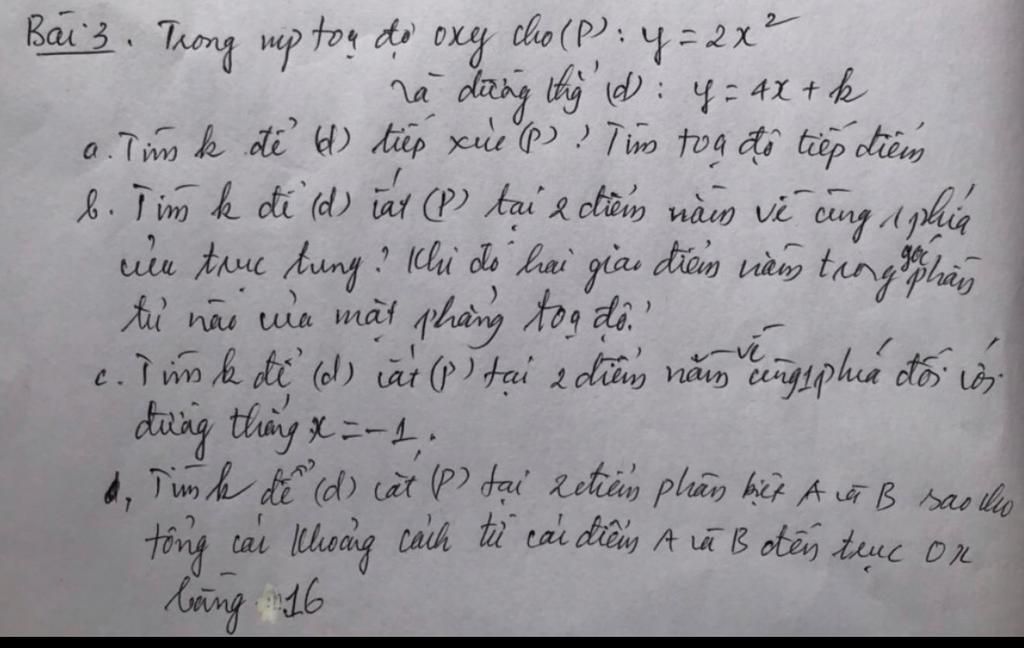 Bài 3. Trong mp toạ độ oxy cho (P): y = 2x²
và đường thg (d): y = 4x + k
a. Tìm k để (d) tiếp xúc (P)? Tìm toạ độ tiếp điểm
b. Tìm k để (d) cắt (P) tại 2 điểm nằm về cùng 1 phía
của trục tung? Khi đó hai giao điểm nằm trong góc phần
tư nào của mặt phẳng toạ độ?
c. Tìm k để (d) cắt (P) tại 2 điểm nằm về cùng 1 phía đối với
đường thẳng x = -1.
d, Tìm k để (d) cắt (P) tại 2 điểm phân biệt A và B sao cho
tổng các khoảng cách từ các điểm A và B đến trục Ox
bằng 16